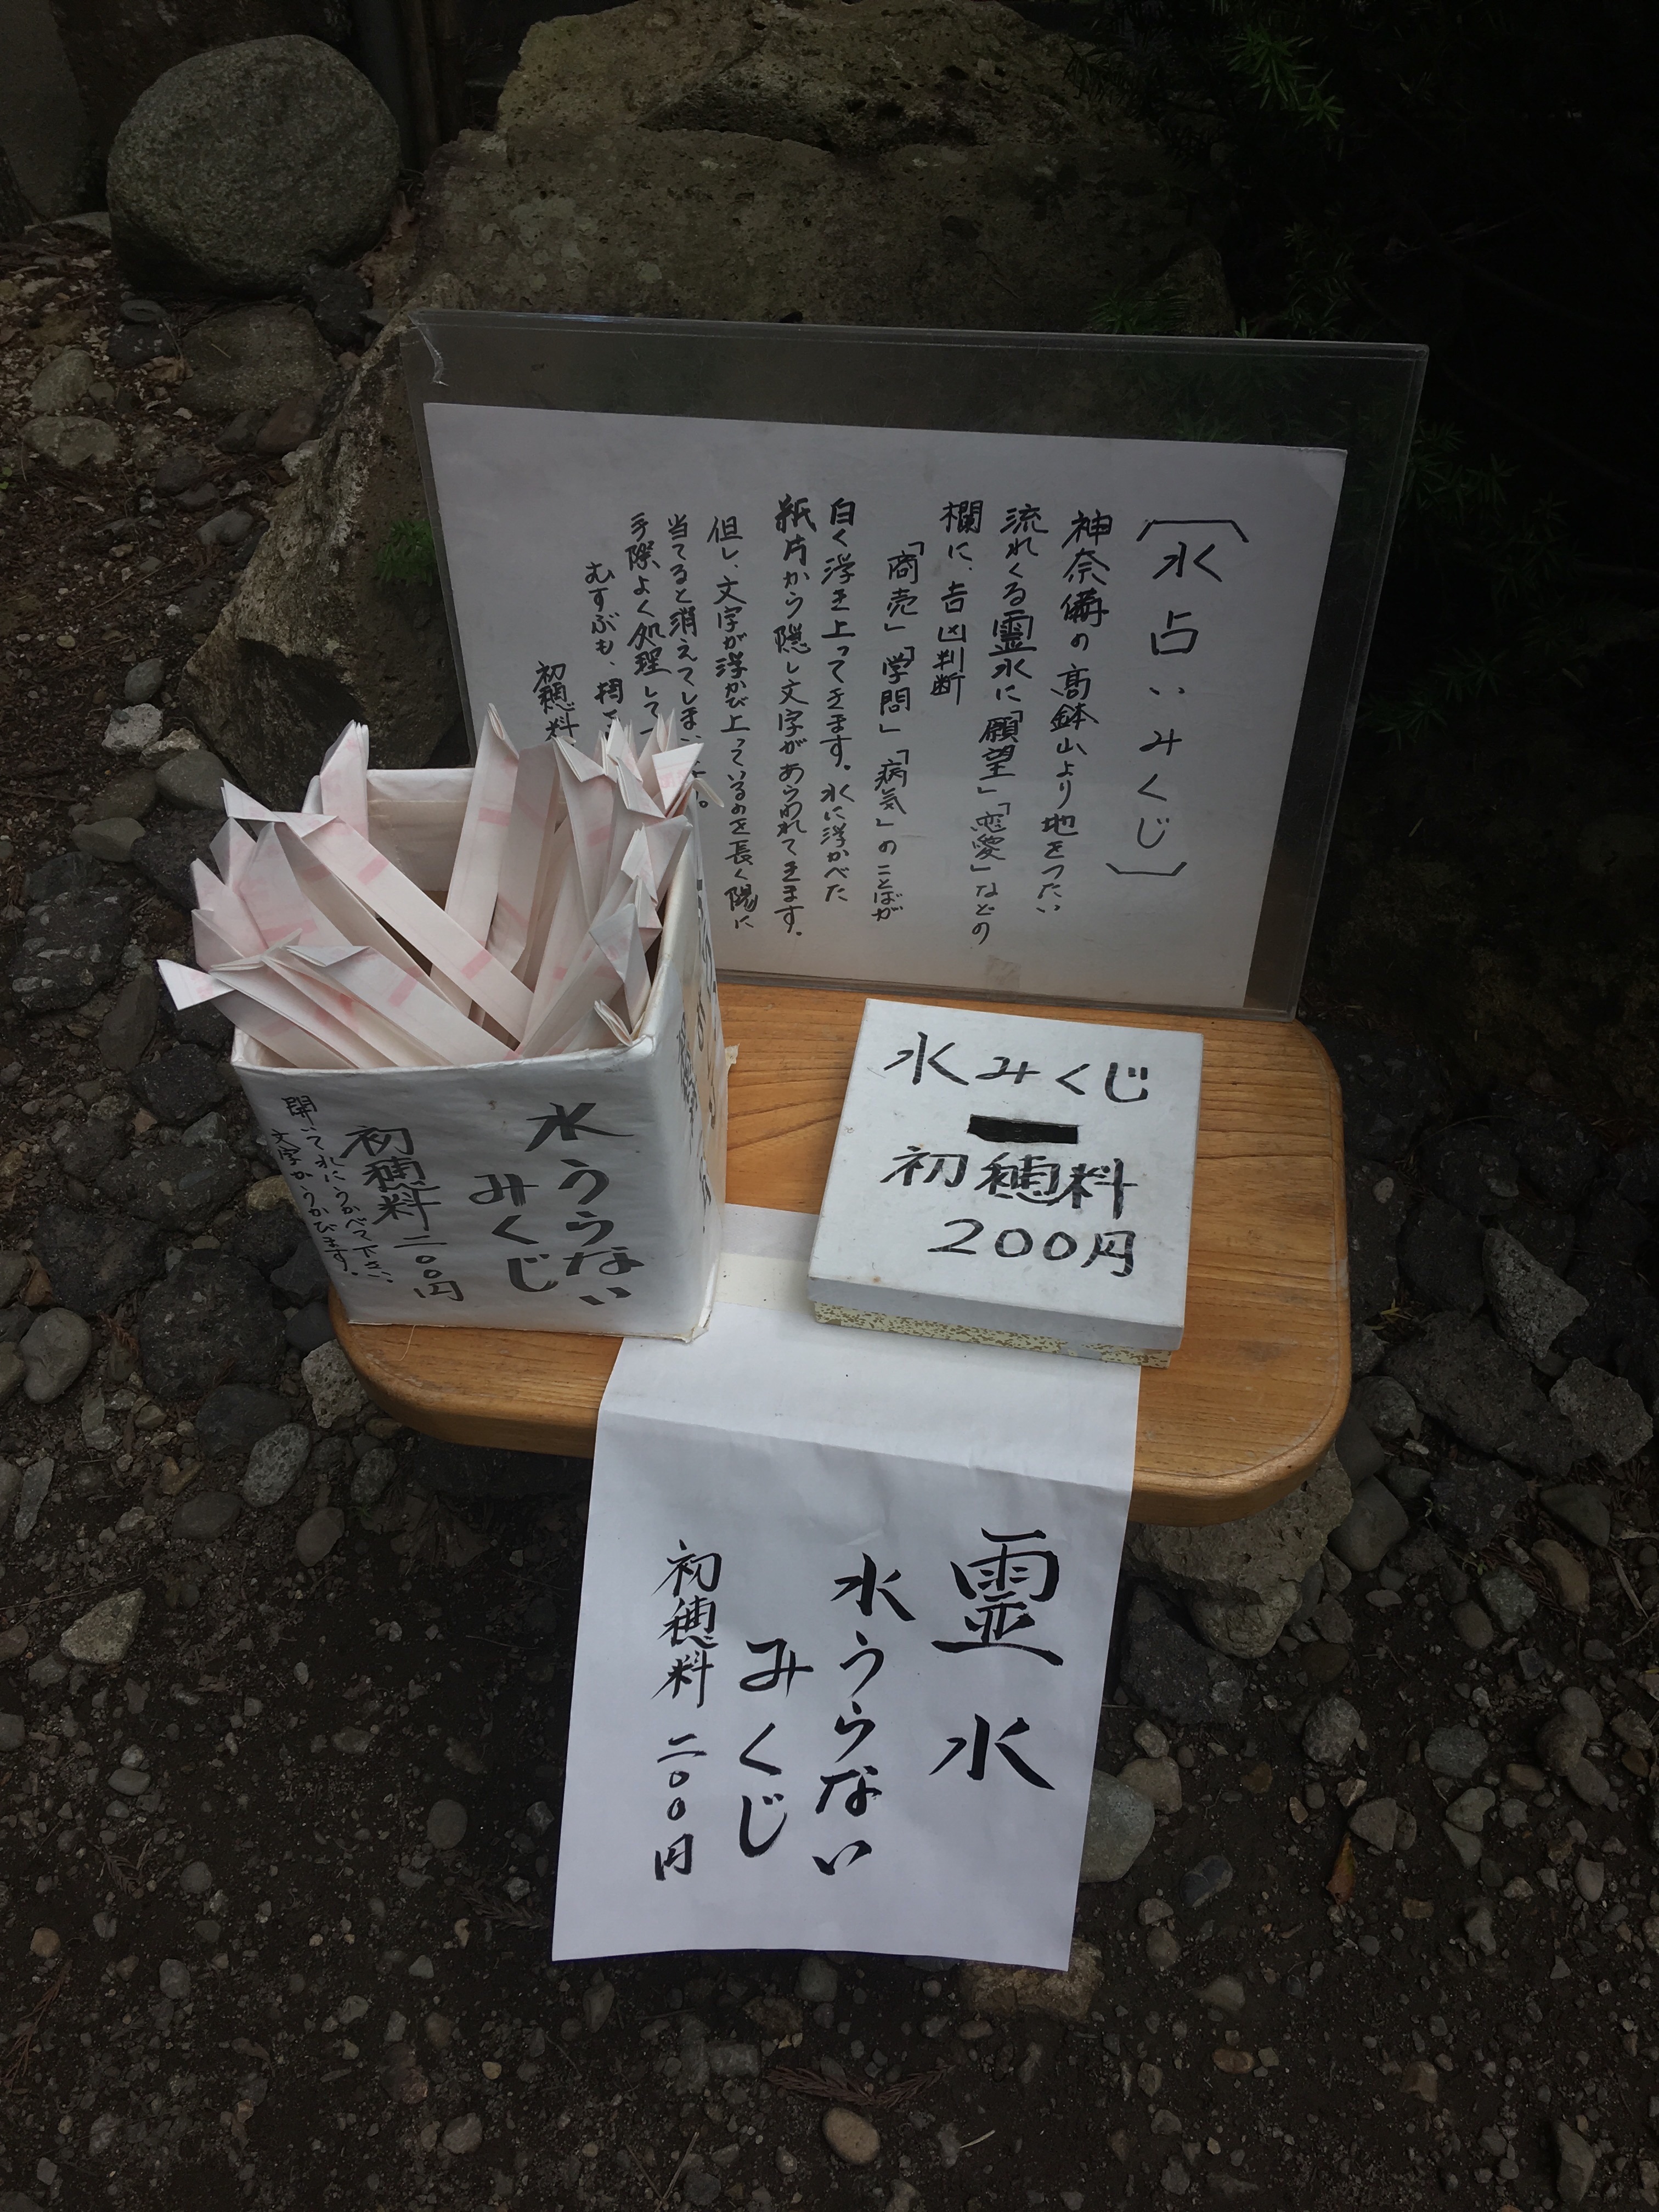 水占いみくじ
神奈備の高鉢山より地をつたい
流れくる霊水に「願望」「恋愛」などの
欄に、吉凶判断
「商売」「学問」「病気」のことばが
白く浮き上ってきます。水に浮かべた
紙片から隠し文字があらわれてきます。
但し、文字が浮かび上っているのを長く陽に
当てると消えてしま
手際よく処理して
むすぶも、
初穂料
水うらない
みくじ
初穂料二〇〇円
開いて水にうかべて下さい。
文字がうかびます。
水みくじ
初穂料
200円
霊水
水うらない
みくじ
初穂料 二〇〇円